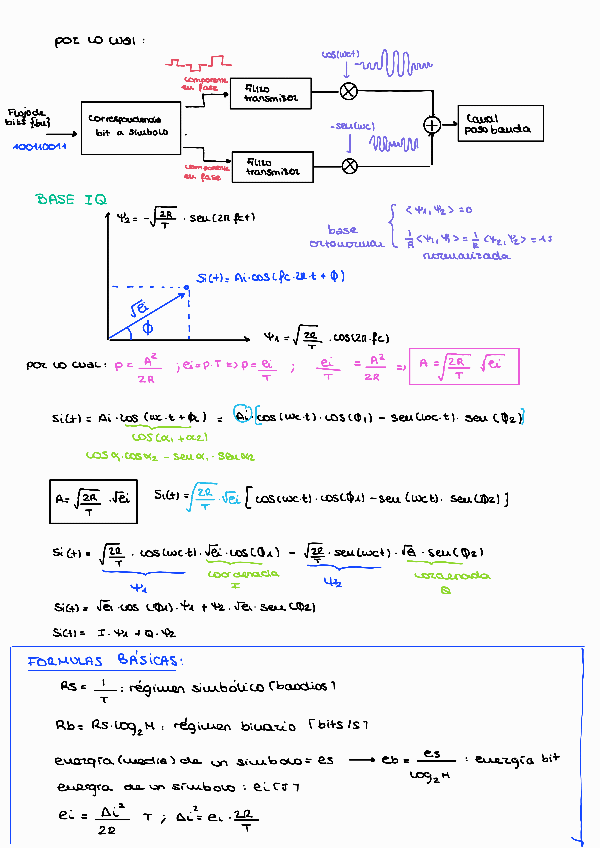 por lo cual:
cos(wct)
componente
en fase
Filtro
transmisor
Flujo de
bits {bn}
correspondencia
bit a símbolo
100110011
-sen(wc)
Canal
paso banda
componente
en fase
Filtro
transmisor
BASE IQ
Ψ2 = -√(2R/T) · sen(2π fct)
base
ortonormal
⟨Ψ1, Ψ2⟩ = 0
1/R ⟨Ψ1, Ψ1⟩ = 1/R ⟨Ψ2, Ψ2⟩ = 1
normalizada
Si(t) = Ai·cos(fc·2π·t + ϕ)
√ei
ϕ
Ψ1 = √(2R/T) · cos(2π·fc)
por lo cual: p = A²/2R ; ei = p·T => p = ei/T ; ei/T = A²/2R => A = √(2R/T) √ei
Si(t) = Ai·cos(wc·t + ϕ) = Ai·[cos(wc·t)·cos(ϕ1) - sen(wc·t)·sen(ϕ2)]
cos(α1 + α2)
cosα1·cosα2 - senα1·senα2
A = √(2R/T) · √ei
Si(t) = √(2R/T) √ei [cos(wc·t)·cos(ϕ1) - sen(wc·t)·sen(ϕ2)]
Si(t) = √(2R/T) · cos(wc·t)·√ei·cos(ϕ1) - √(2R/T) · sen(wct)·√ei·sen(ϕ2)
Ψ1
coordenada
I
Ψ2
coordenada
Q
Si(t) = √ei·cos(ϕ1)·Ψ1 + Ψ2·√ei·sen(ϕ2)
Si(t) = I·Ψ1 + Q·Ψ2
FORMULAS BÁSICAS:
Rs = 1/T : régimen simbólico [baudios]
Rb = Rs·log2M : régimen binario [bits/s]
energía (media) de un símbolo = es → eb = es/log2M : energía bit
energía de un símbolo: ei [J]
ei = Ai²/2R T ; Ai² = ei·2R/T